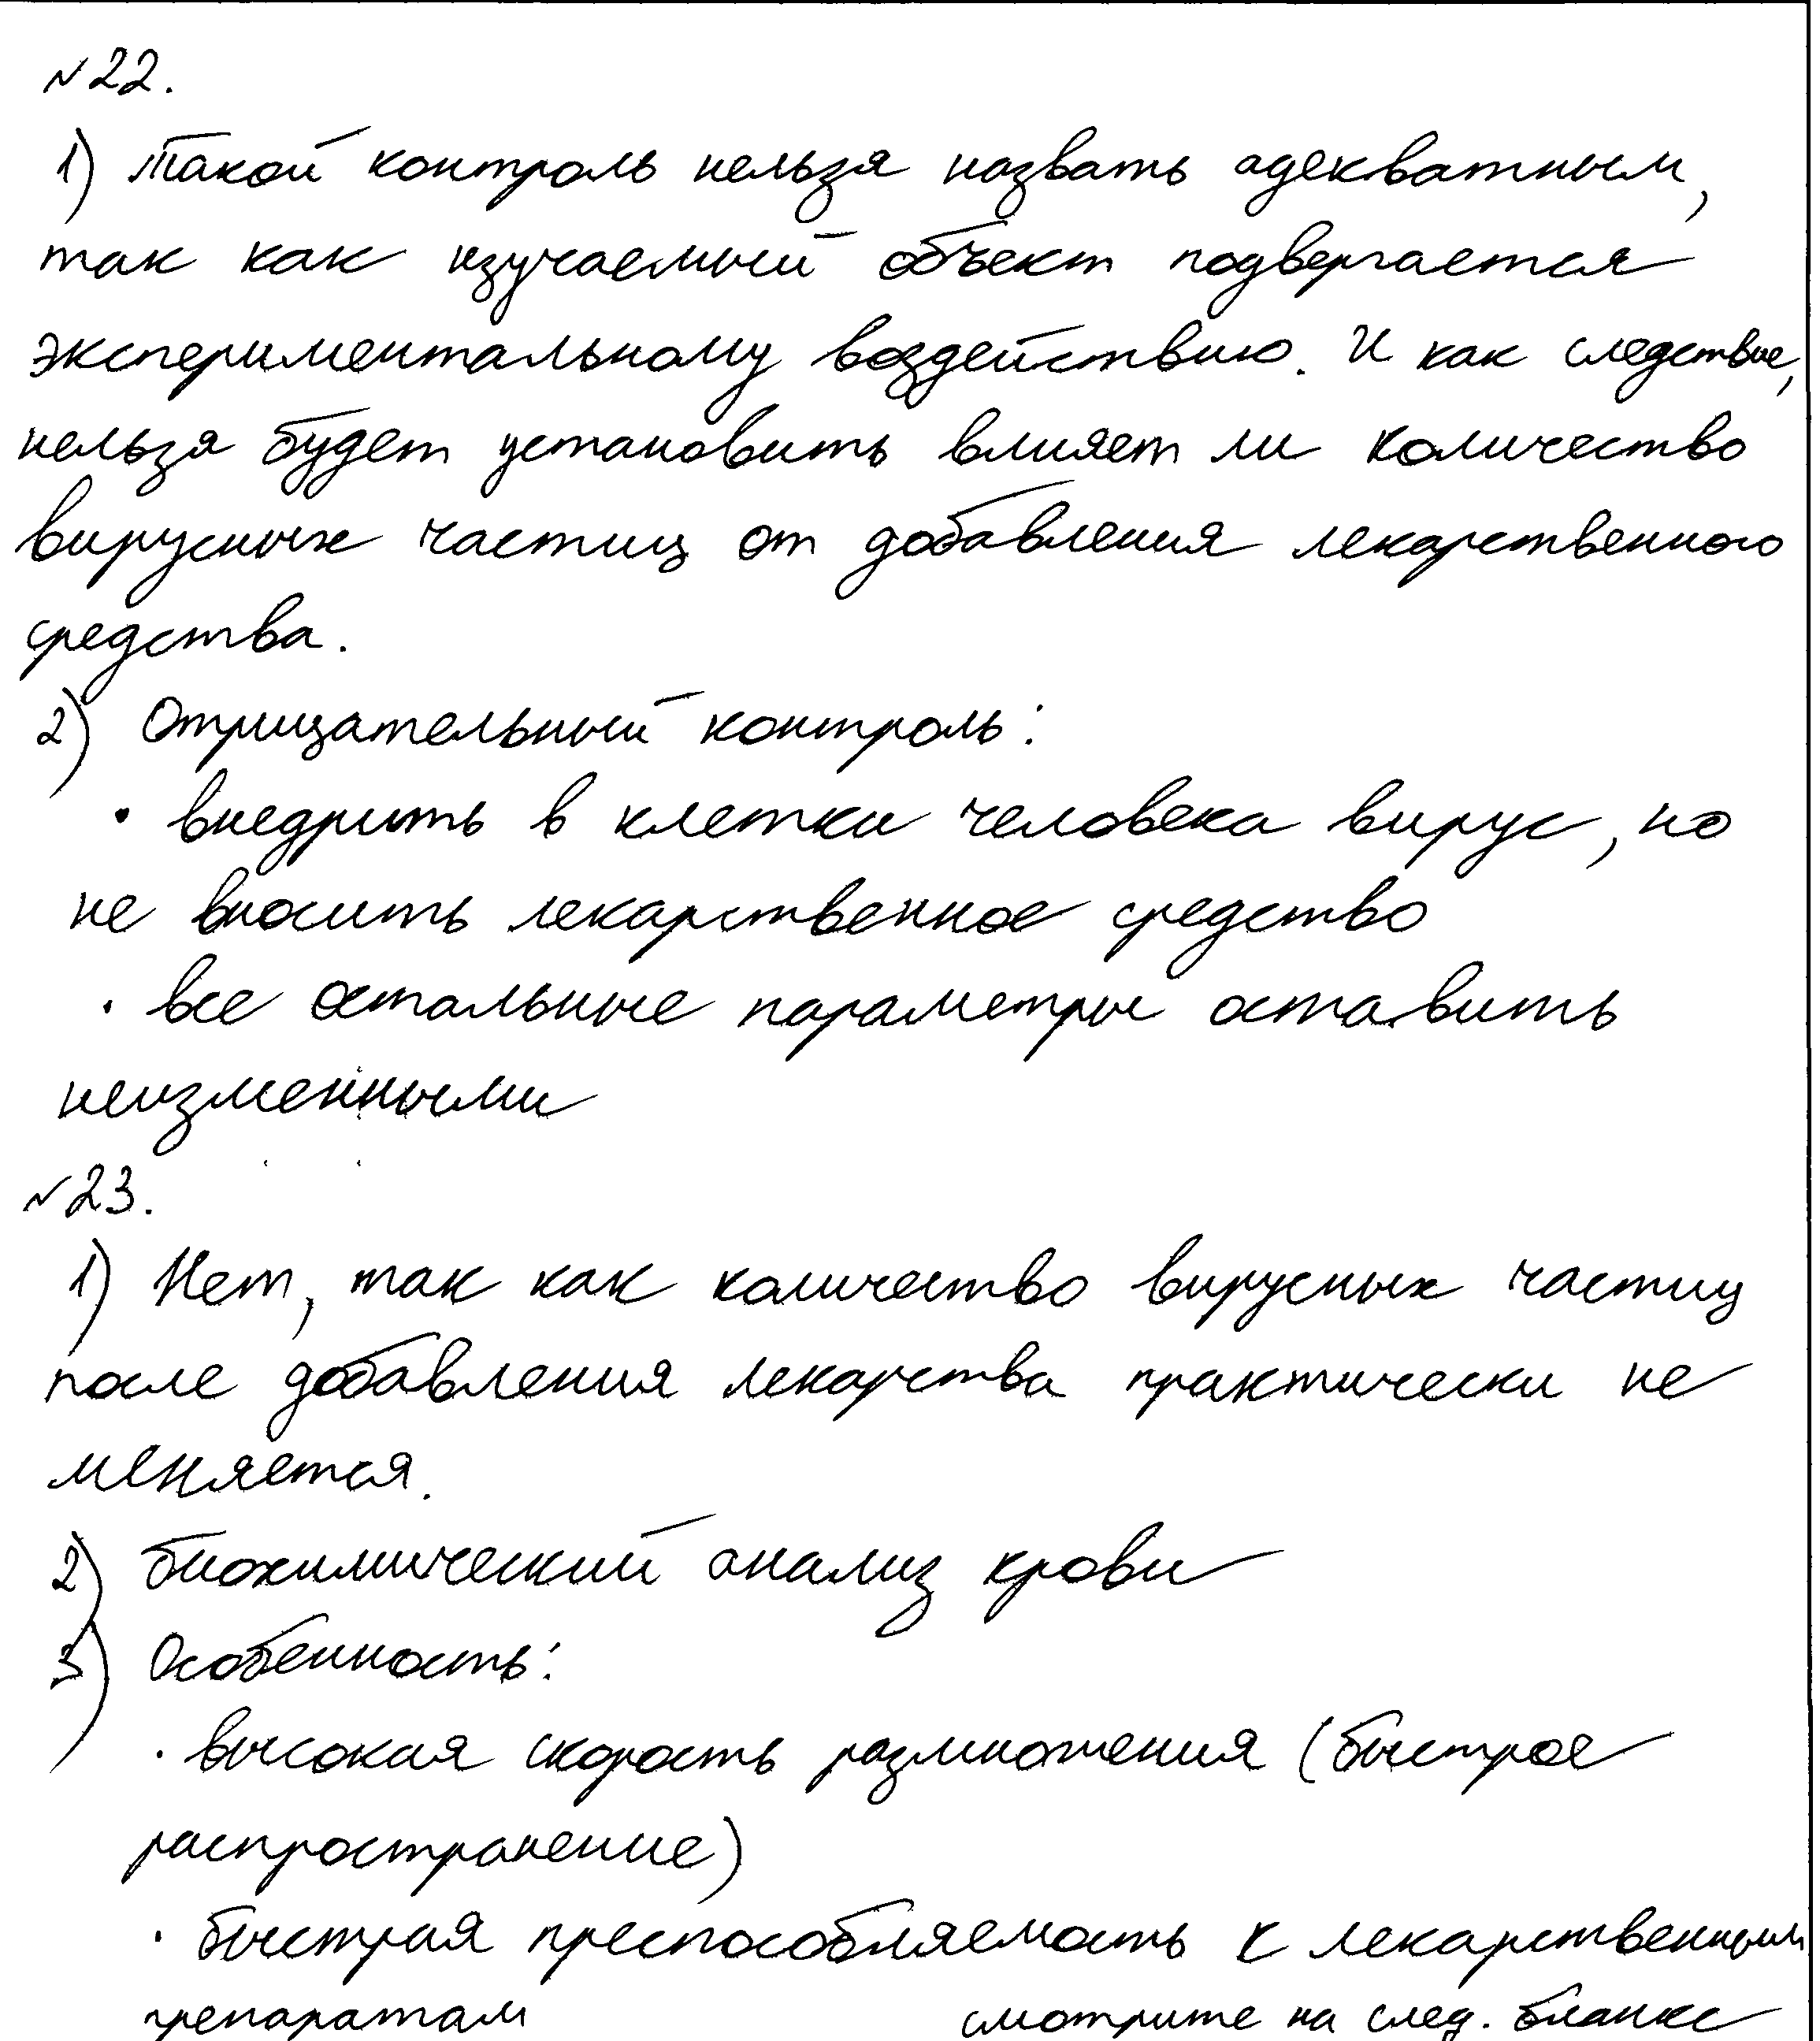 №22.
1) Такой контроль нельзя назвать адекватным,
так как изучаемый объект подвергается
экспериментальному воздействию. И как следствие,
нельзя будет установить влияет ли количество
вирусных частиц от добавления лекарственного
средства.
2) Отрицательный контроль:
• внедрить в клетки человека вирус, но
не вносить лекарственное средство
• все остальные параметры оставить
неизменными
№23.
1) Нет, так как количество вирусных частиц
после добавления лекарства практически не
меняется.
2) биохимический анализ крови
3) Особенность:
• высокая скорость размножения (быстрое
распространение)
• быстрая преспособляемость к лекарственным
препаратам смотрите на след. бланке